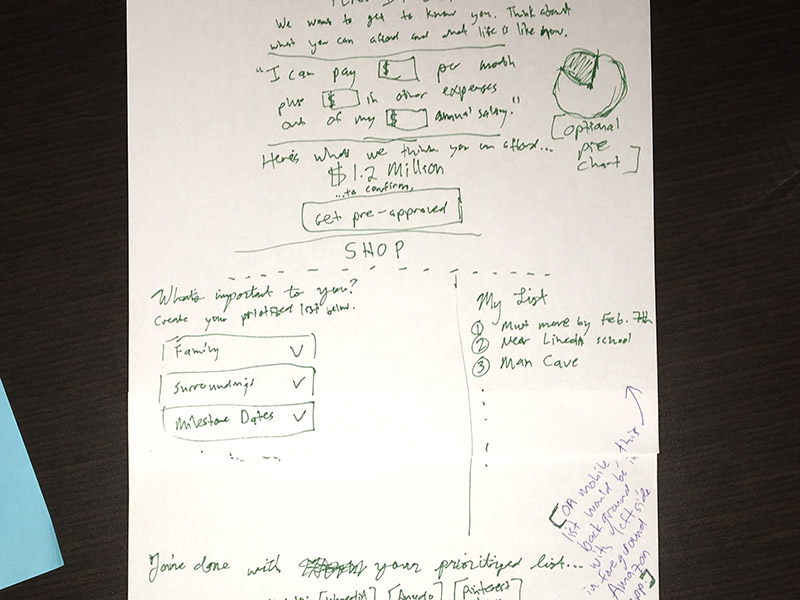 We want to get to know you. Think about
what you can afford and what life is like now.
"I can pay $ per month
plus $ in other expenses
out of my $ annual salary."
[optional
pie
chart]
Here's what we think you can afford...
$1.2 Million
...to confirm,
Get pre-approved
SHOP
What's important to you?
Create your prioritized list below.
Family
Surroundings
Milestone Dates
My List
① Must move by Feb. 7th
② Near Lincoln school
③ Man Cave
[On mobile, this
list would be in
background
with left side
in foreground
Amazon
app]
You're done with your prioritized list...
[Pinterest